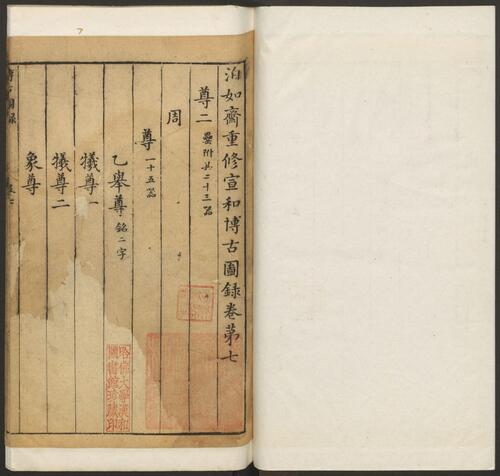 泊如齋重修宣和博古圖錄卷第七
尊二 罍附共二十三器
周
尊 一十五器
乙舉尊 銘二字
犧尊一
犧尊二
象尊